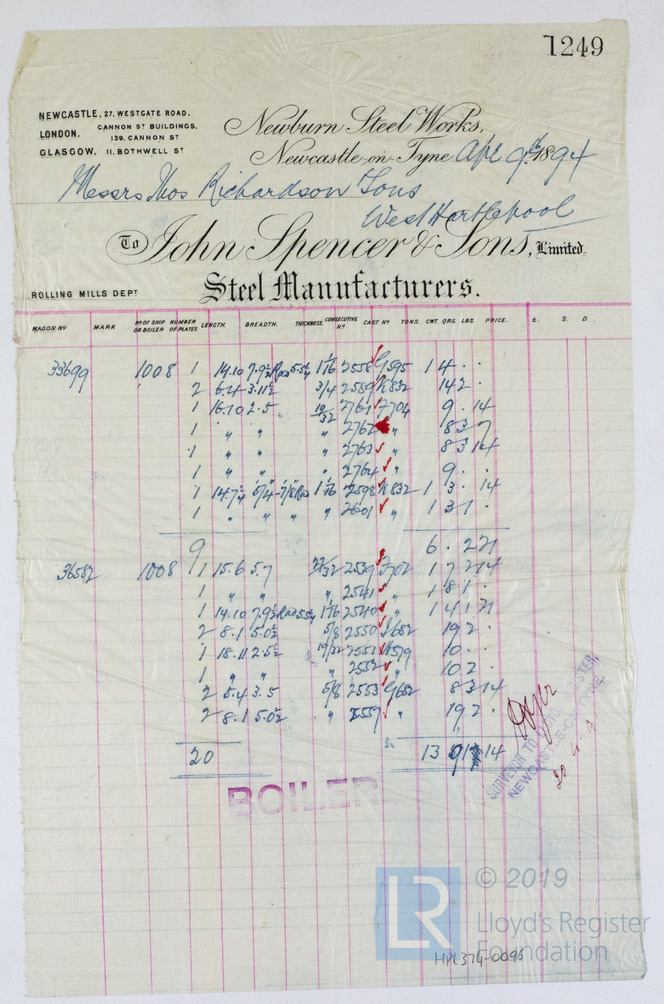 1249
NEWCASTLE, 27, WESTGATE ROAD.
LONDON. CANNON ST BUILDINGS, 139, CANNON ST
GLASGOW, 11, BOTHWELL ST
Newburn Steel Works,
Newcastle-on-Tyne Apl 9th 1894
Messrs Thos Richardson & Sons
West Hartlepool
To John Spencer & Sons, Limited,
ROLLING MILLS DEPT
Steel Manufacturers.
WAGON No MARK No OF SHIP OR BOILER NUMBER OF PLATES LENGTH. BREADTH. THICKNESS CONSECUTIVE No CAST No TONS. CWT. QRS. LBS. PRICE. £. S. D
33699 1008 1 14.10 7.9½ Rad 5.5¼ 1 1/16 2558 G595 1 4 . .
2 6.4 3.11½ 3/4 2589 K832 14 2 .
1 16.10 2.5 19/32 2761 F704 9 . 14
1 " " " 2762 " 8 3 7
1 " " " 2763 " 8 3 14
1 " " " 2764 " 9 . .
1 14.7½ 5/4 7/8 Rad 1 1/16 2598 K832 1 3 . 14
1 " " " " 2601 " 1 3 1 .
9 6 . 2 21
36582 1008 1 15.6 5.7 2539 F702 1 7 2 14
1 " " " 2541 " 1 8 1 .
1 14.10 7.9½ Rad 5.5¼ 1 1/16 2540 " 1 4 1 21
2 8.1 5.0½ 5/8 2550 G652 19 2 .
1 18.11 2.5½ 19/32 2551 H579 10 . .
1 " " " 2552 " 10 2 .
2 5.4 3.5 5/8 2553 G652 8 3 14
2 8.1 5.0½ " 2557 " 19 2 .
20 13 9 1 14
SURVEYOR TO LLOYD'S REGISTER,
NEWCASTLE-ON-TYNE
20 4 9
BOILER
LR
© 2019
Lloyd's Register
Foundation
HPL374-0096